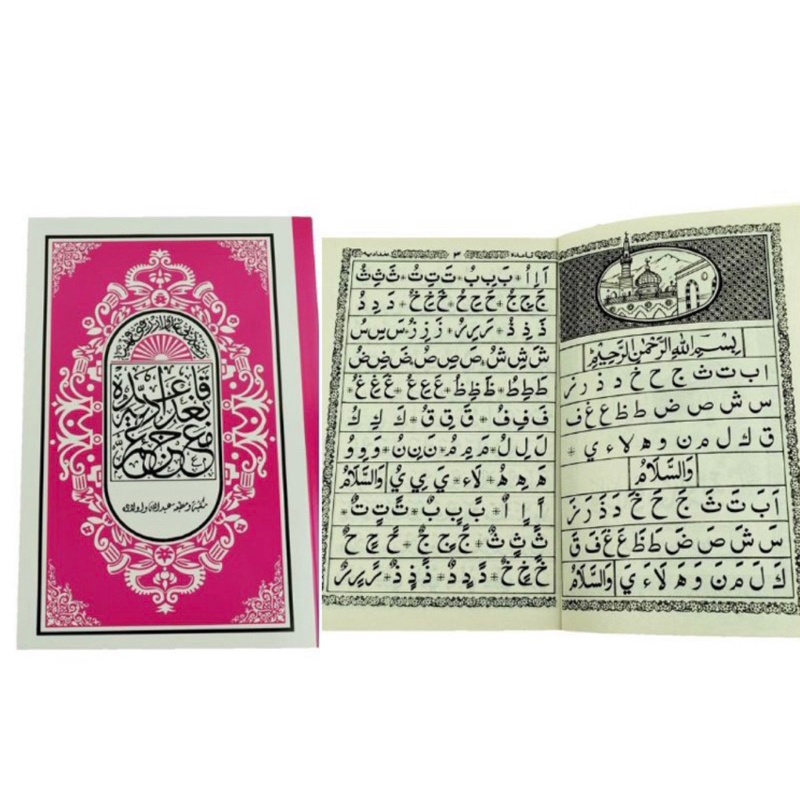 قاعدة
بغدادية
مع
جزء عم
بِسْمِ اللّٰهِ الرَّحْمٰنِ الرَّحِيْمِ
ا ب ت ث ج ح خ د ذ ر ز
س ش ص ض ط ظ ع غ ف
ق ك ل م ن و ه لا ء ي
وَالسَّلَامُ
اَ بَ تَ ثَ جَ حَ خَ دَ ذَ رَ زَ
سَ شَ صَ ضَ طَ ظَ عَ غَ فَ قَ
كَ لَ مَ نَ وَ هَ لَا ءَ يَ وَالسَّلَامُ
قاعدة ٣ بغدادية
اَ اِ اُ + بَ بِ بُ + تَ تِ تُ + ثَ ثِ ثُ
جَ جِ جُ + حَ حِ حُ + خَ خِ خُ + دَ دِ دُ
ذَ ذِ ذُ + رَ رِ رُ + زَ زِ زُ + سَ سِ سُ
شَ شِ شُ + صَ صِ صُ + ضَ ضِ ضُ
طَ طِ طُ + ظَ ظِ ظُ + عَ عِ عُ + غَ غِ غُ
فَ فِ فُ + قَ قِ قُ + كَ كِ كُ
لَ لِ لُ + مَ مِ مُ + نَ نِ نُ + وَ وِ وُ
هَ هِ هُ + لَاء + يَ يِ يُ وَالسَّلَامُ
اً اٍ اٌ + بً بٍ بٌ + تً تٍ تٌ +
ثً ثٍ ثٌ + جً جٍ جٌ + حً حٍ حٌ
خً خٍ خٌ + دً دٍ دٌ + ذً ذٍ ذٌ + رً رٍ رٌ